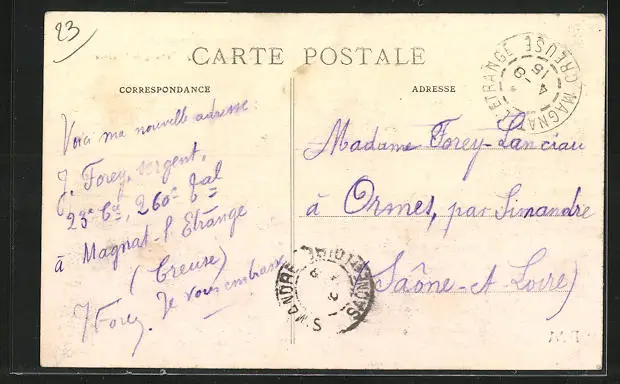 23
CARTE POSTALE
CORRESPONDANCE
ADRESSE
Voici ma nouvelle adresse:
J. Forey, sergent,
23e Cie, 260e Tal
à Magnat-l'Etrange
(Creuse)
J Forey. Je vous embrasse
Madame Forey-Lanciau
à Ormes, par Simandre
(Saône-et-Loire)
MAGNAT L'ETRANGE CREUSE
SIMANDRE SAONE ET LOIRE